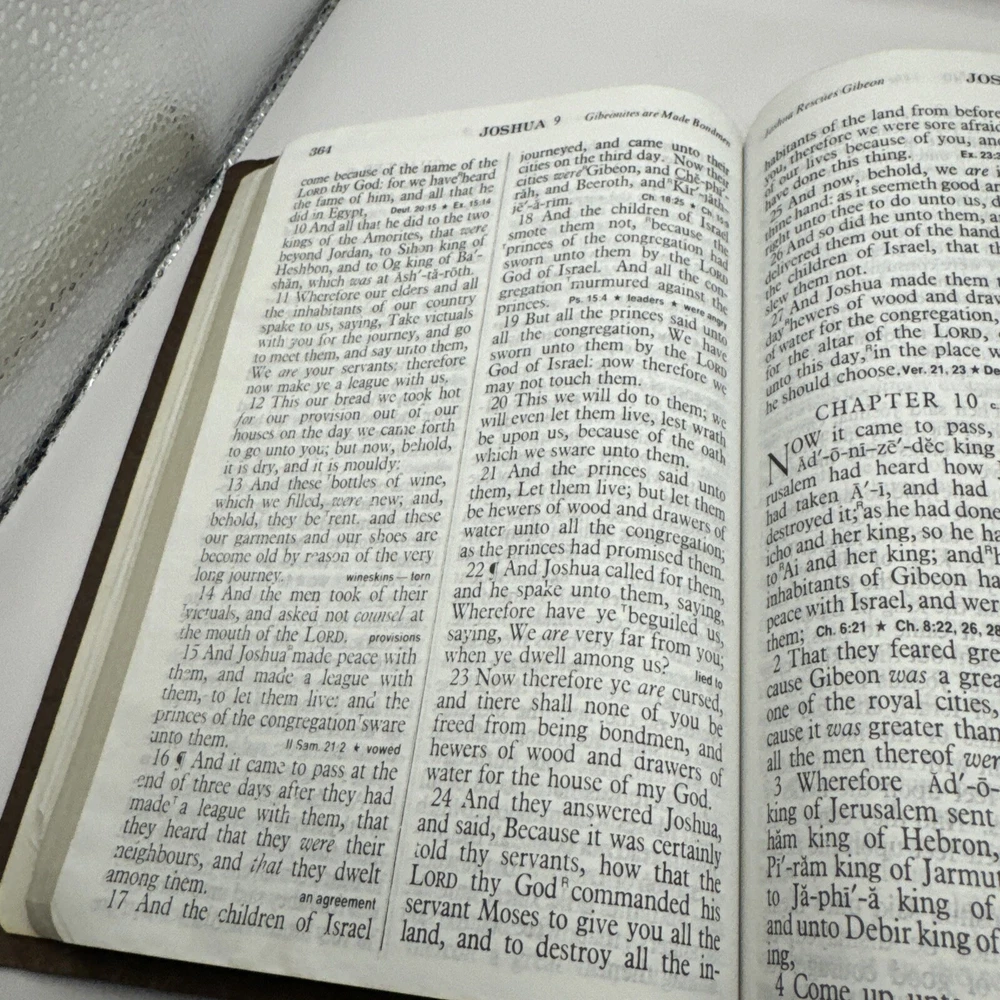 364
JOSHUA 9
Gibeonites are Made Bondmen
come because of the name of the
LORD thy God: for we have heard
the fame of him, and all that he
did in Egypt, Deut 20:15 ★ Ex. 15:14
10 And all that he did to the two
kings of the Amorites, that were
beyond Jordan, to Sihon king of
Heshbon, and to Og king of Ba´-
shăn, which was at Ăsh´-tā-rŏth.
11 Wherefore our elders and all
the inhabitants of our country
spake to us, saying, Take victuals
with you for the journey, and go
to meet them, and say unto them,
We are your servants: therefore
now make ye a league with us,
12 This our bread we took hot
for our provision out of our
houses on the day we came forth
to go unto you; but now, behold,
it is dry, and it is mouldy:
13 And these bottles of wine,
which we filled, were new; and,
behold, they be rent. and these
our garments and our shoes are
become old by reason of the very
long journey. wineskins — torn
14 And the men took of their
victuals, and asked not counsel at
the mouth of the LORD. provisions
15 And Joshua made peace with
them, and made a league with
them, to let them live: and the
princes of the congregation sware
unto them. II Sam. 21:2 ★ vowed
16 ¶ And it came to pass at the
end of three days after they had
made a league with them, that
they heard that they were their
neighbours, and that they dwelt
among them. an agreement
17 And the children of Israel
journeyed, and came unto their
cities on the third day. Now their
cities were Gibeon, and Chĕ-phi´-
răh, and Beeroth, and Kir´-jăth-
jē´-ā-rim. Ch. 18:25 ★ Ch.
18 And the children of Israel
smote them not, because the
princes of the congregation had
sworn unto them by the LORD
God of Israel. And all the con-
gregation murmured against the
princes. Ps. 15:4 ★ leaders ★ were angry
19 But all the princes said unto
all the congregation, We have
sworn unto them by the LORD
God of Israel: now therefore we
may not touch them.
20 This we will do to them; we
will even let them live, lest wrath
be upon us, because of the oath
which we sware unto them.
21 And the princes said unto
them, Let them live; but let them
be hewers of wood and drawers of
water unto all the congregation;
as the princes had promised them.
22 ¶ And Joshua called for them,
and he spake unto them, saying,
Wherefore have ye beguiled us,
saying, We are very far from you;
when ye dwell among us? lied to
23 Now therefore ye are cursed,
and there shall none of you be
freed from being bondmen, and
hewers of wood and drawers of
water for the house of my God.
24 And they answered Joshua,
and said, Because it was certainly
told thy servants, how that the
LORD thy God ᴿcommanded his
servant Moses to give you all the
land, and to destroy all the in-
Joshua Rescues Gibeon
JOS
habitants of the land from before
you, therefore we were sore afraid
of our lives because of you, and
have done this thing. Ex. 23:
25 And now, behold, we are i
thine hand: as it seemeth good an
right unto thee to do unto us, d
26 And so did he unto them, a
delivered them out of the hand
the children of Israel, that th
slew them not.
27 And Joshua made them
day hewers of wood and draw
of water for the congregation,
for the altar of the LORD,
unto this day, in the place w
he should choose. Ver. 21, 23 ★ De
CHAPTER 10
NOW it came to pass,
Ăd´-ō-nī-zē´-dĕc king
rusalem had heard how
had taken Ā´-ī, and had
destroyed it; ᴿas he had done
icho and her king, so he ha
to ᴿAi and her king; and ᴿh
inhabitants of Gibeon ha
peace with Israel, and wer
them; Ch. 6:21 ★ Ch. 8:22, 26, 28
2 That they feared gre
cause Gibeon was a grea
one of the royal cities,
cause it was greater than
all the men thereof wer
3 Wherefore Ăd´-ō-
king of Jerusalem sent
hăm king of Hebron,
Pī´-răm king of Jarmut
to Jă-phī´-ă king of
and unto Debir king of
ing,
4 Come up unto